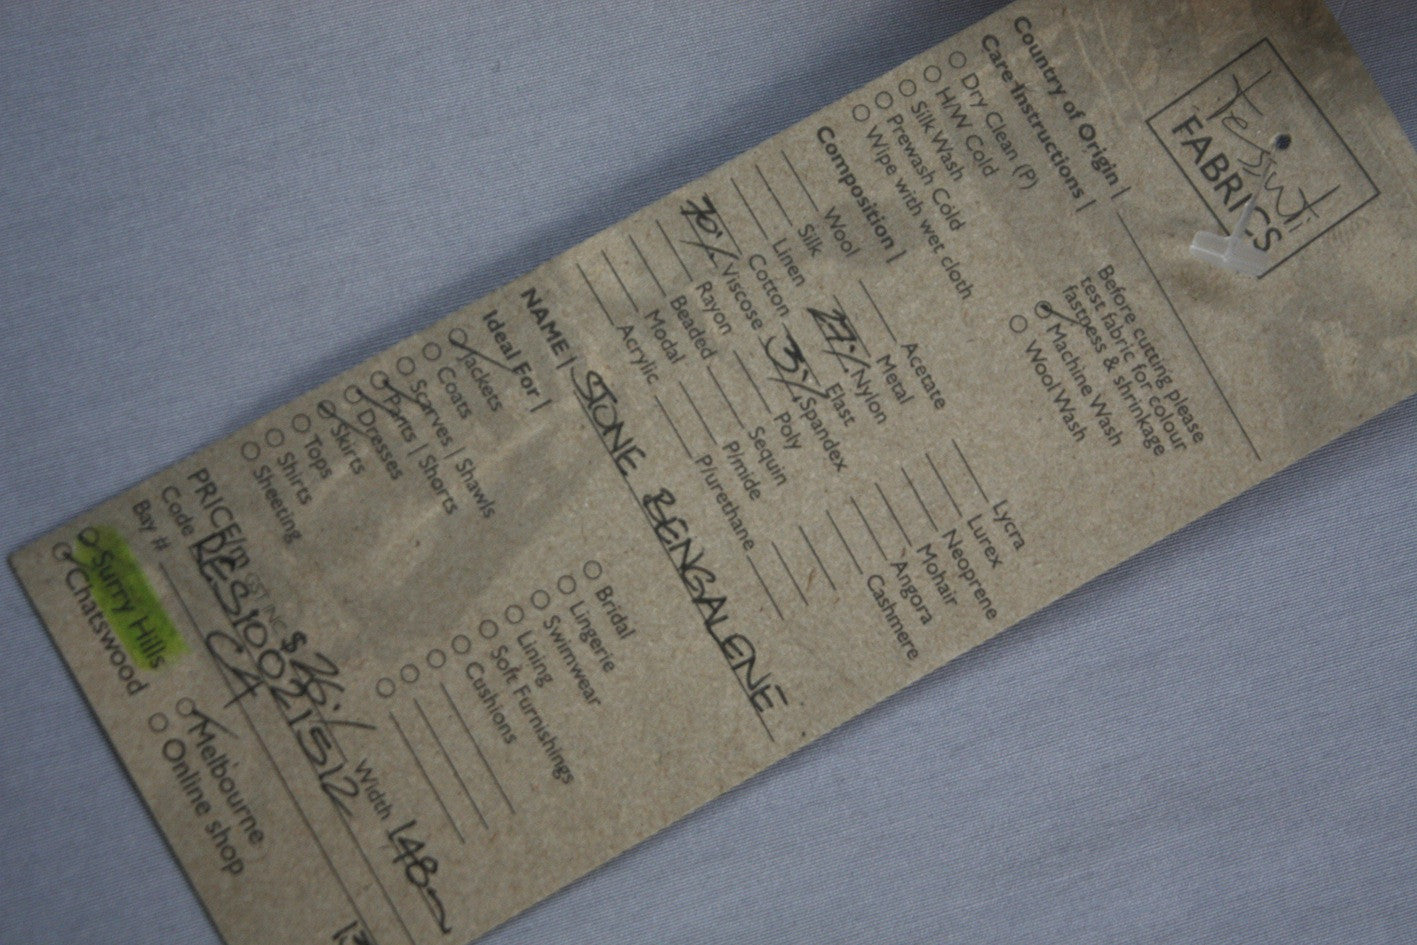 Tessuti
FABRICS
Country of Origin |
Care Instructions |
Before cutting please
test fabric for colour
fastness & shrinkage
Dry Clean (P)
H/W Cold
Silk Wash
Prewash Cold
Wipe with wet cloth
Machine Wash
Wool Wash
Composition |
Wool
Silk
Linen
Cotton
70% Viscose
Rayon
Beaded
Modal
Acrylic
Acetate
Metal
27% Nylon
Elast
3% Spandex
Poly
Sequin
P/mide
P/urethane
Lycra
Lurex
Neoprene
Mohair
Angora
Cashmere
NAME | STONE BENGALENE
Ideal For |
Jackets
Coats
Scarves | Shawls
Pants | Shorts
Dresses
Skirts
Tops
Shirts
Sheeting
Bridal
Lingerie
Swimwear
Lining
Soft Furnishings
Cushions
PRICE/m GST INC $ Width 148
Code
Bay #
Surry Hills
Chatswood
Melbourne
Online shop